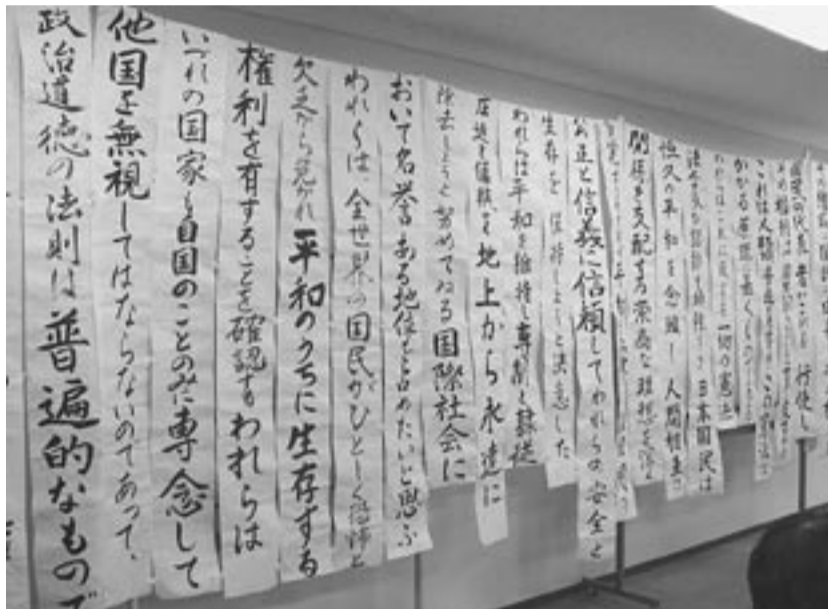 国民の代表者がこれを行使し
これは人類普遍の原理であり この憲法は
かかる原理に基くものである
われらはこれに反する一切の憲法
法令及び詔勅を排除する 日本国民は
恒久の平和を念願し人間相互の
関係を支配する崇高な理想を深く
公正と信義に信頼してわれらの安全と
生存を保持しようと決意した
われらは平和を維持し専制と隷従
圧迫と偏狭を地上から永遠に
除去しようと努めてゐる国際社会に
おいて名誉ある地位を占めたいと思ふ
われらは、全世界の国民がひとしく恐怖と
欠乏から免かれ平和のうちに生存する
権利を有することを確認する われらは
いづれの国家も自国のことのみに専念して
他国を無視してはならないのであって、
政治道徳の法則は普遍的なもので